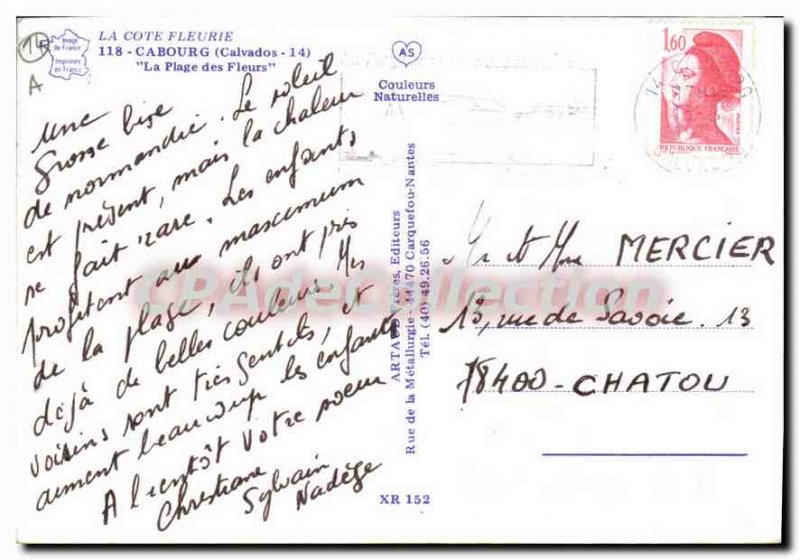 14
A
Image de France
Imprimée en France
LA COTE FLEURIE
118 - CABOURG (Calvados - 14)
"La Plage des Fleurs"
AS
Couleurs
Naturelles
Une
Grosse bise
de normandie. Le soleil
est présent, mais la chaleur
se fait rare. Les enfants
profitent au mascimum
de la plage, ils ont pris
déjà de belles couleurs. Mes
voisins sont très gentils, et
aiment beaucoup les enfants
A bientôt votre soeur
Christiane
Sylvain
Nadège
ARTAUD Frères, Editeurs
Rue de la Métallurgie - 44470 Carquefou-Nantes
Tél. (40) 49.26.56
XR 152
1,60
POSTES
REPUBLIQUE FRANÇAISE
Mr et Mme MERCIER
13, rue de Savoie. 13
78400 - CHATOU
CPAdeCollection